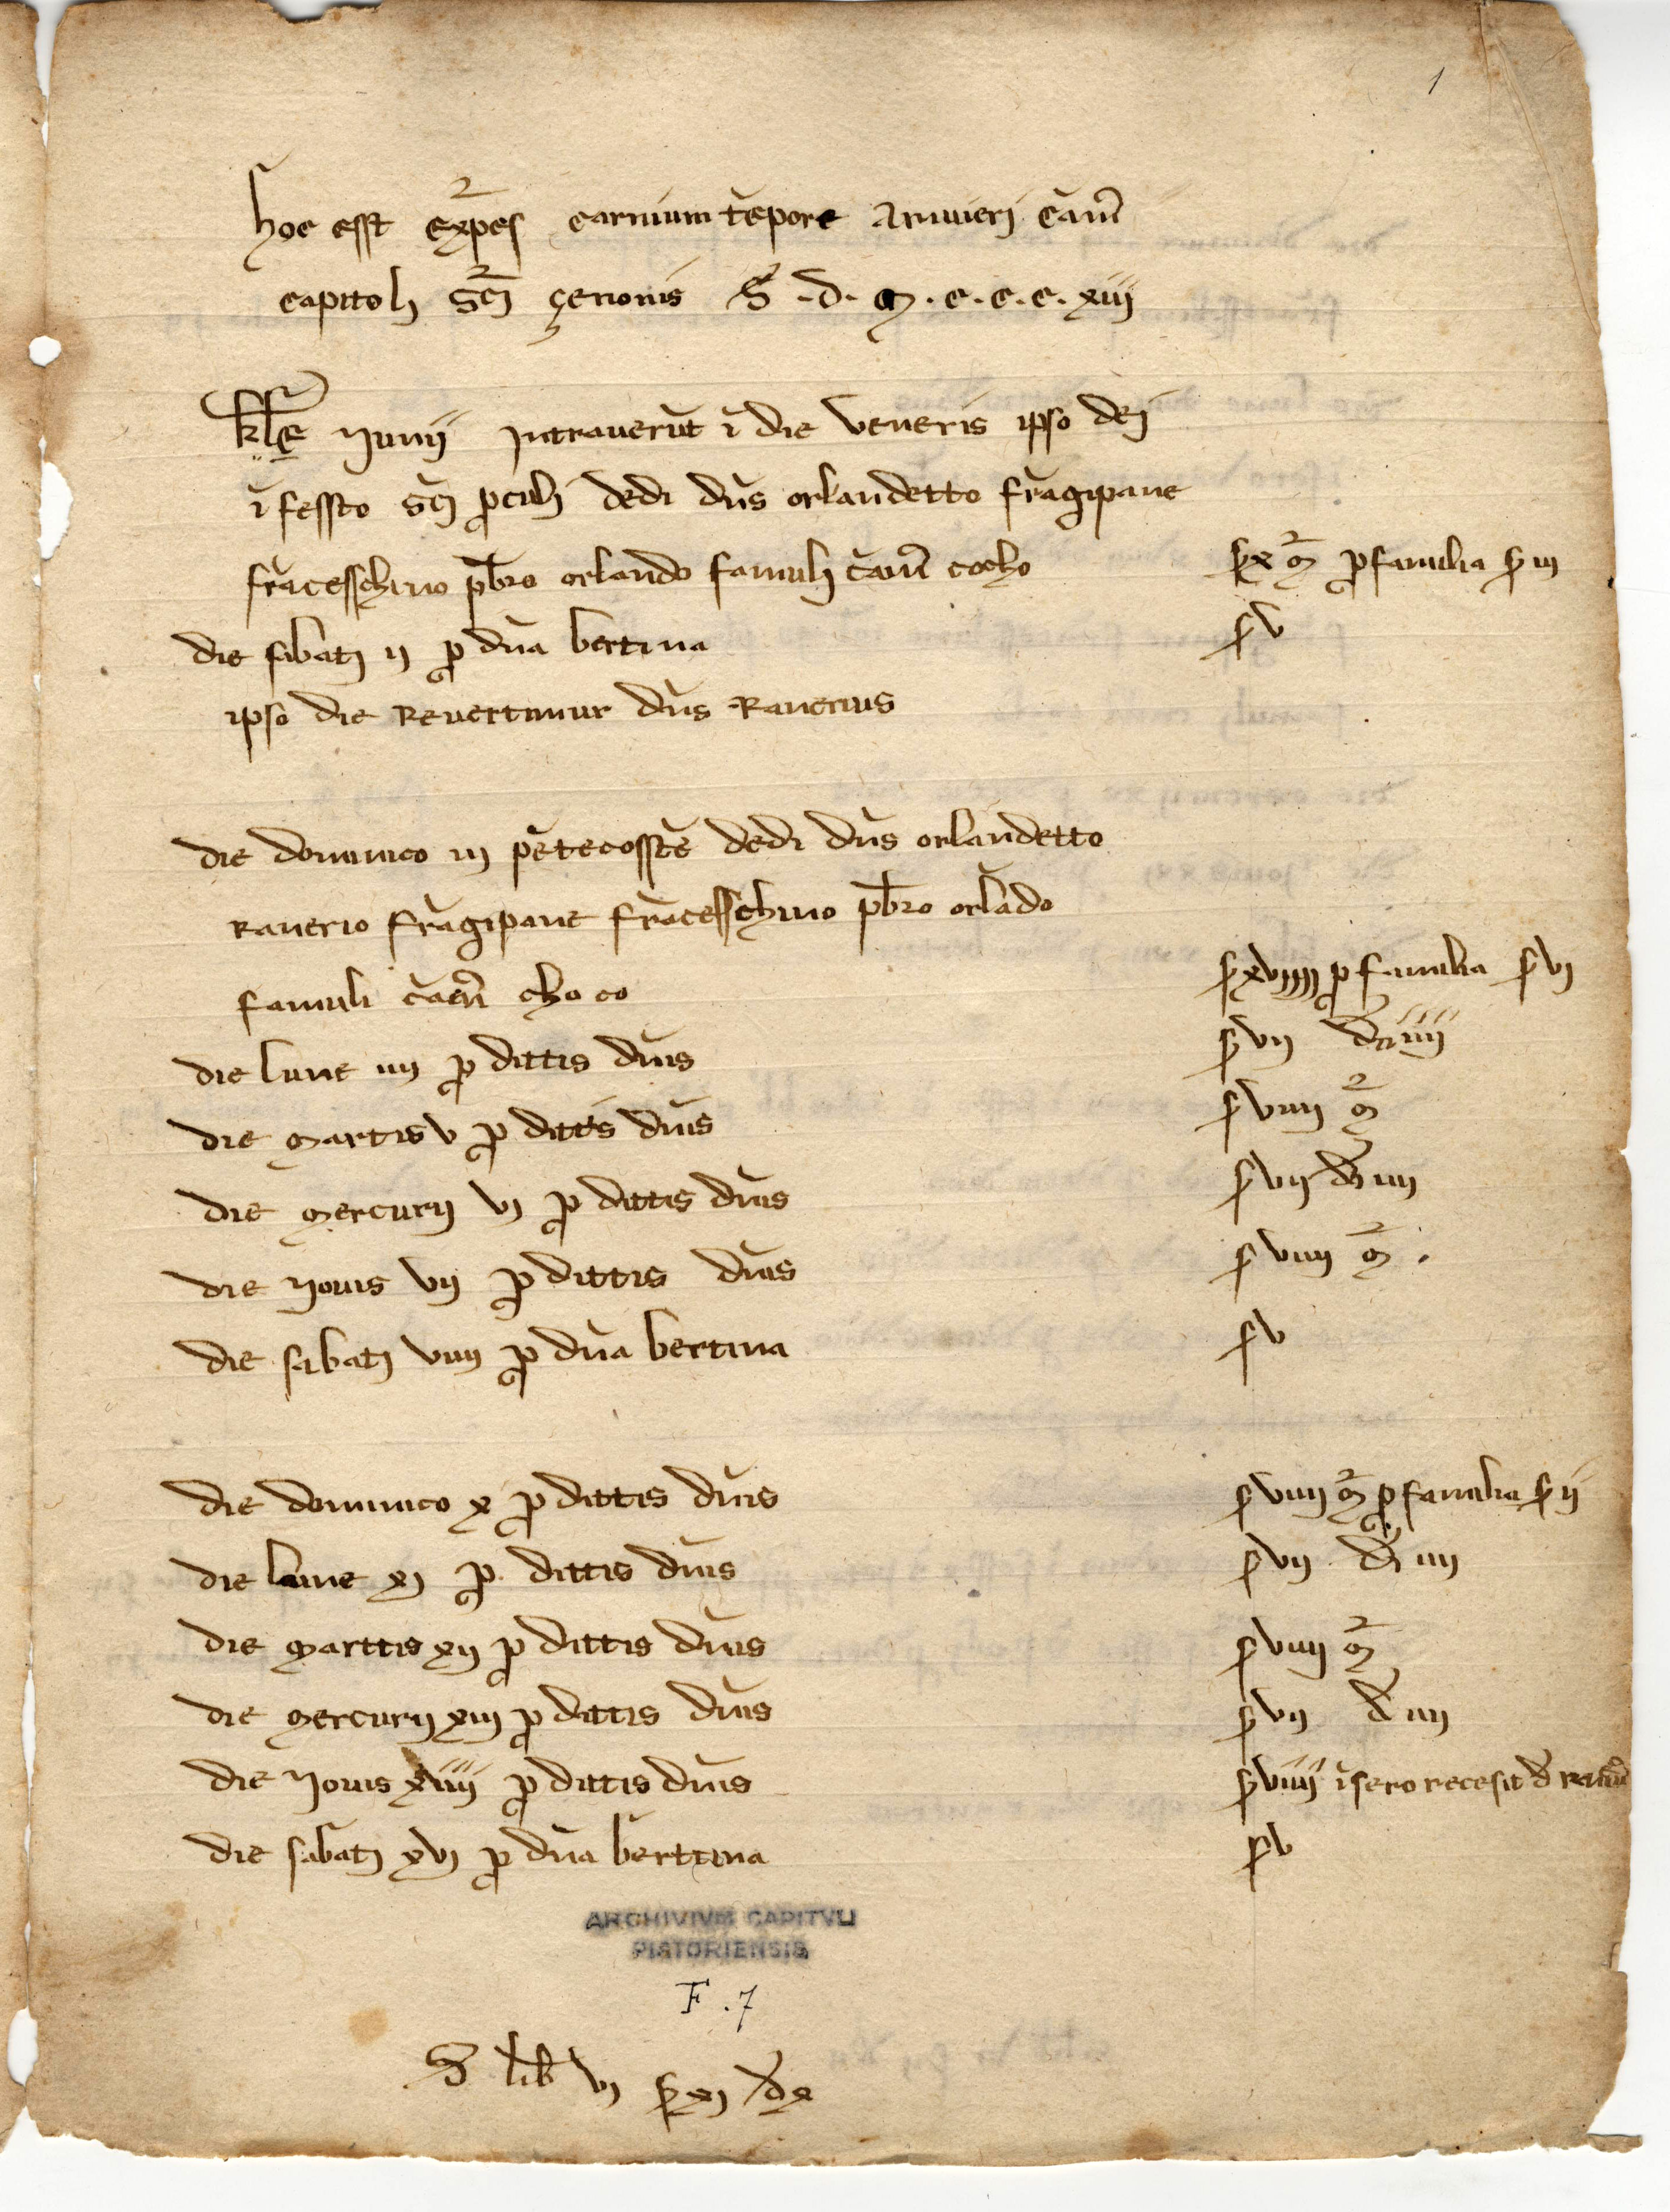 1
hoc esst expēs carnium tēpore Arriuieri cām̄
capitoli sc̄j çenonis S̄ .d. m . c . c . c . xiij
kl̄e Junij Intrauerūt ī die veneris ipso dej
ī fessto sc̄j p̱culi dedi dn̄s orlandetto frāgipane
frācesschino pb̄ro orlando famuli cām̄ cocho
s x m̄ p̱ familia s iij
die sabatj ij p̱ dn̄a bertina
s v
ipso die Revertimur dn̄s Ranerius
die dominico iij pētecosstē dedi dn̄s orlandetto
Ranerio frāgipane frācesschino pb̄ro orlādo
famuli cām̄ cho co
s xviiij p̱ familia s vj
die lune iiij p̱ dittis dn̄is
s vij d iiij
die martis v p̱ dittis dn̄is
s viiij m̄
die mercurij vj p̱ dittis dn̄is
s vij d iiij
die Jouis vij p̱ dittis dn̄is
s viiij m̄ .
die sabatj viiij p̱ dn̄a bertina
s v
die dominico x p̱ dittis dn̄is
s viiij m̄ p̱ familia s ij
die lune xj p̱ dittis dn̄is
s vij d iiij
die marttis xij p̱ dittis dn̄is
s viiij m̄
die mercurij xiij p̱ dittis dn̄is
s vij d iiij
die Jouis xiiij p̱ dittis dn̄is
s viiij ī sero recesit d Ran̄
die sabatj xvj p̱ dn̄a berttina
s v
ARCHIVIVM CAPITVLI
PISTORIENSIS
F . 7
S̄ lib̄ vj s xj d x